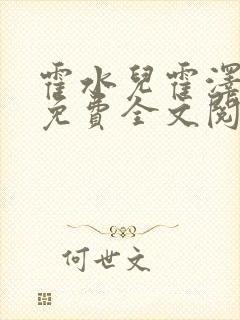 霍水兒霍澤
免費全文閱
何世文